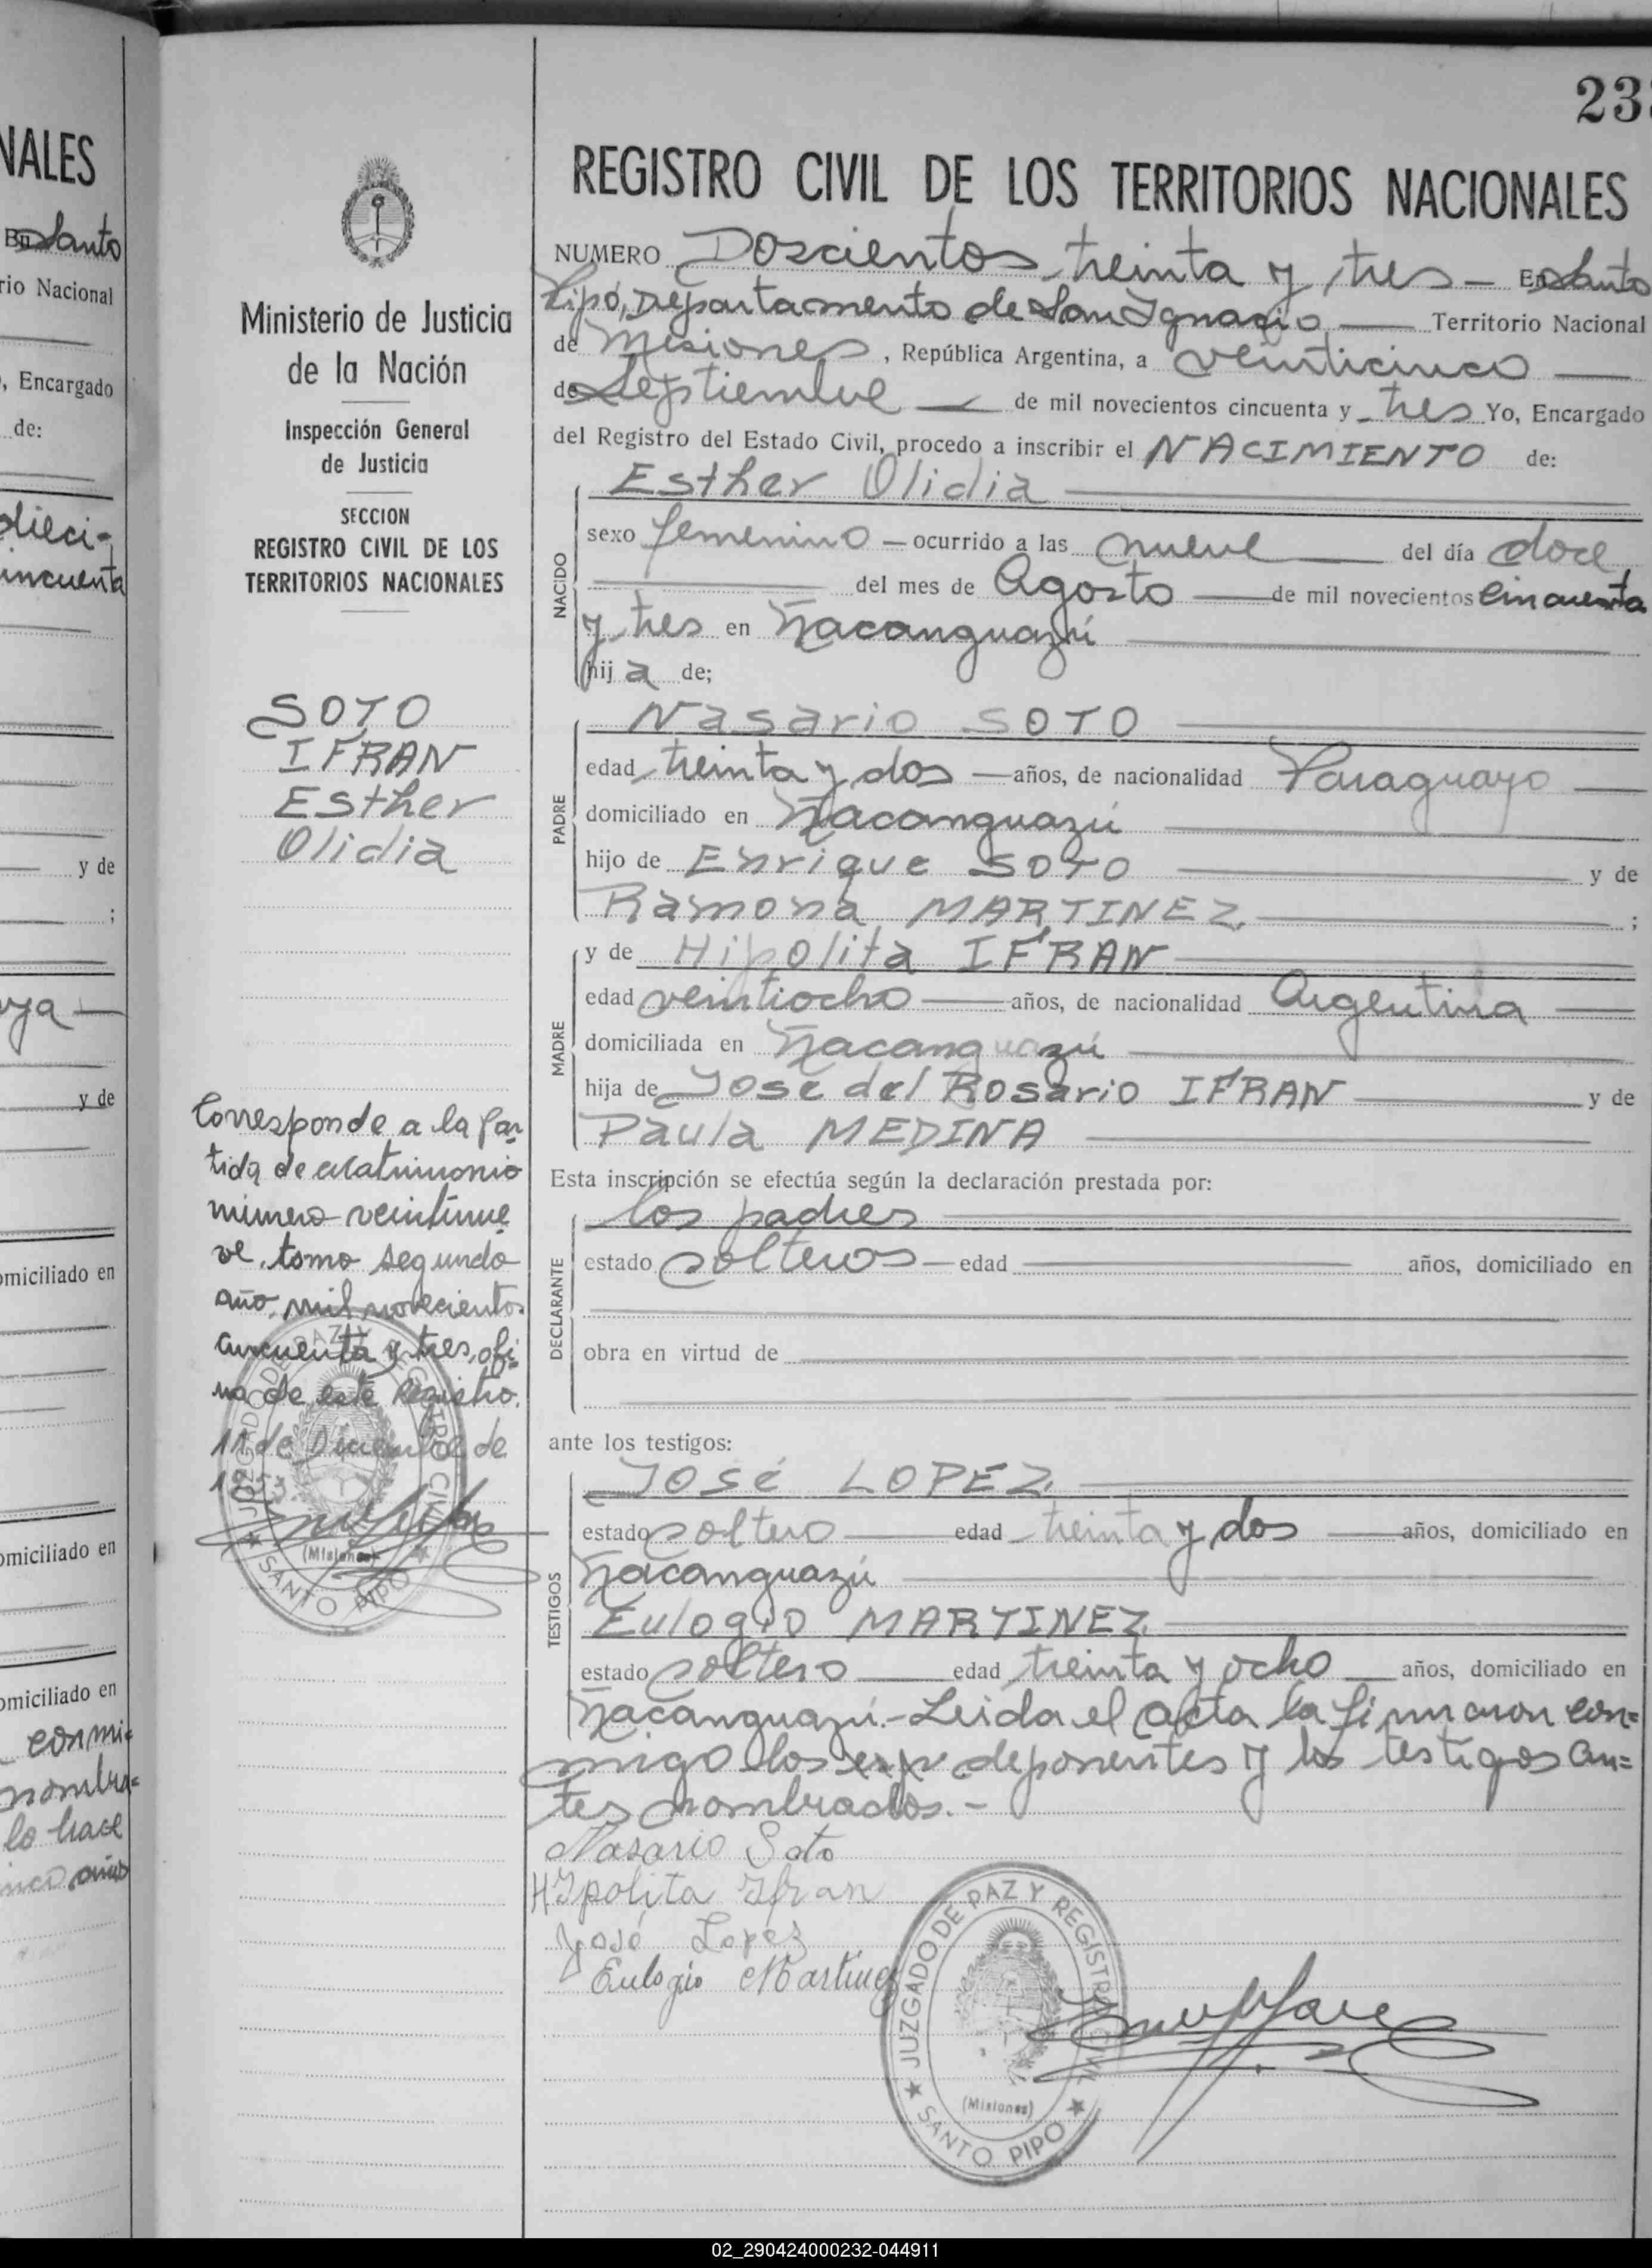 NALES
En Santo
rio Nacional
, Encargado
de:
dieci-
incuenta
y de
;
uya
y de
omiciliado en
omiciliado en
omiciliado en
conmi=
nombra=
lo hace
años
Ministerio de Justicia
de la Nación
Inspección General
de Justicia
SECCION
REGISTRO CIVIL DE LOS
TERRITORIOS NACIONALES
SOTO
IFRAN
Esther
Olidia
Corresponde a la par
tida de matrimonio
número veintinue
ve, tomo segundo
año mil novecientos
cincuenta y tres, ofi=
na de este Registro.
11 de Diciembre de
1953.
JUZGADO DE PAZ Y REGISTRO CIVIL
(Misiones)
SANTO PIPO
233
REGISTRO CIVIL DE LOS TERRITORIOS NACIONALES
NUMERO Doscientos treinta y tres — En Santo
Pipó, Departamento de San Ignacio — Territorio Nacional
de Misiones, República Argentina, a veinticinco —
de Septiembre — de mil novecientos cincuenta y tres Yo, Encargado
del Registro del Estado Civil, procedo a inscribir el NACIMIENTO de:
NACIDO
Esther Olidia
sexo femenino — ocurrido a las nueve — del día doce
del mes de Agosto — de mil novecientos cincuenta
y tres en Ñacanguazú
hija de;
PADRE
Nasario SOTO
edad treinta y dos — años, de nacionalidad Paraguayo —
domiciliado en Ñacanguazú
hijo de Enrique SOTO y de
Ramona MARTINEZ ;
MADRE
y de Hipolita IFRAN
edad veintiocho — años, de nacionalidad Argentina —
domiciliada en Ñacanguazú
hija de José del Rosario IFRAN y de
Paula MEDINA
Esta inscripción se efectúa según la declaración prestada por:
DECLARANTE
los padres
estado solteros — edad años, domiciliado en
obra en virtud de
ante los testigos:
TESTIGOS
JOSé LOPEZ
estado soltero edad treinta y dos — años, domiciliado en
Ñacanguazú
Eulogio MARTINEZ
estado soltero edad treinta y ocho años, domiciliado en
Ñacanguazú.- Leida el acta la firmaron con=
migo los deponentes y los testigos an=
tes nombrados.-
Nasario Soto
HIpolita Ifran
José Lopez
Eulogio Martinez
JUZGADO DE PAZ Y REGISTRO CIVIL
(Misiones)
SANTO PIPO
02_290424000232-044911